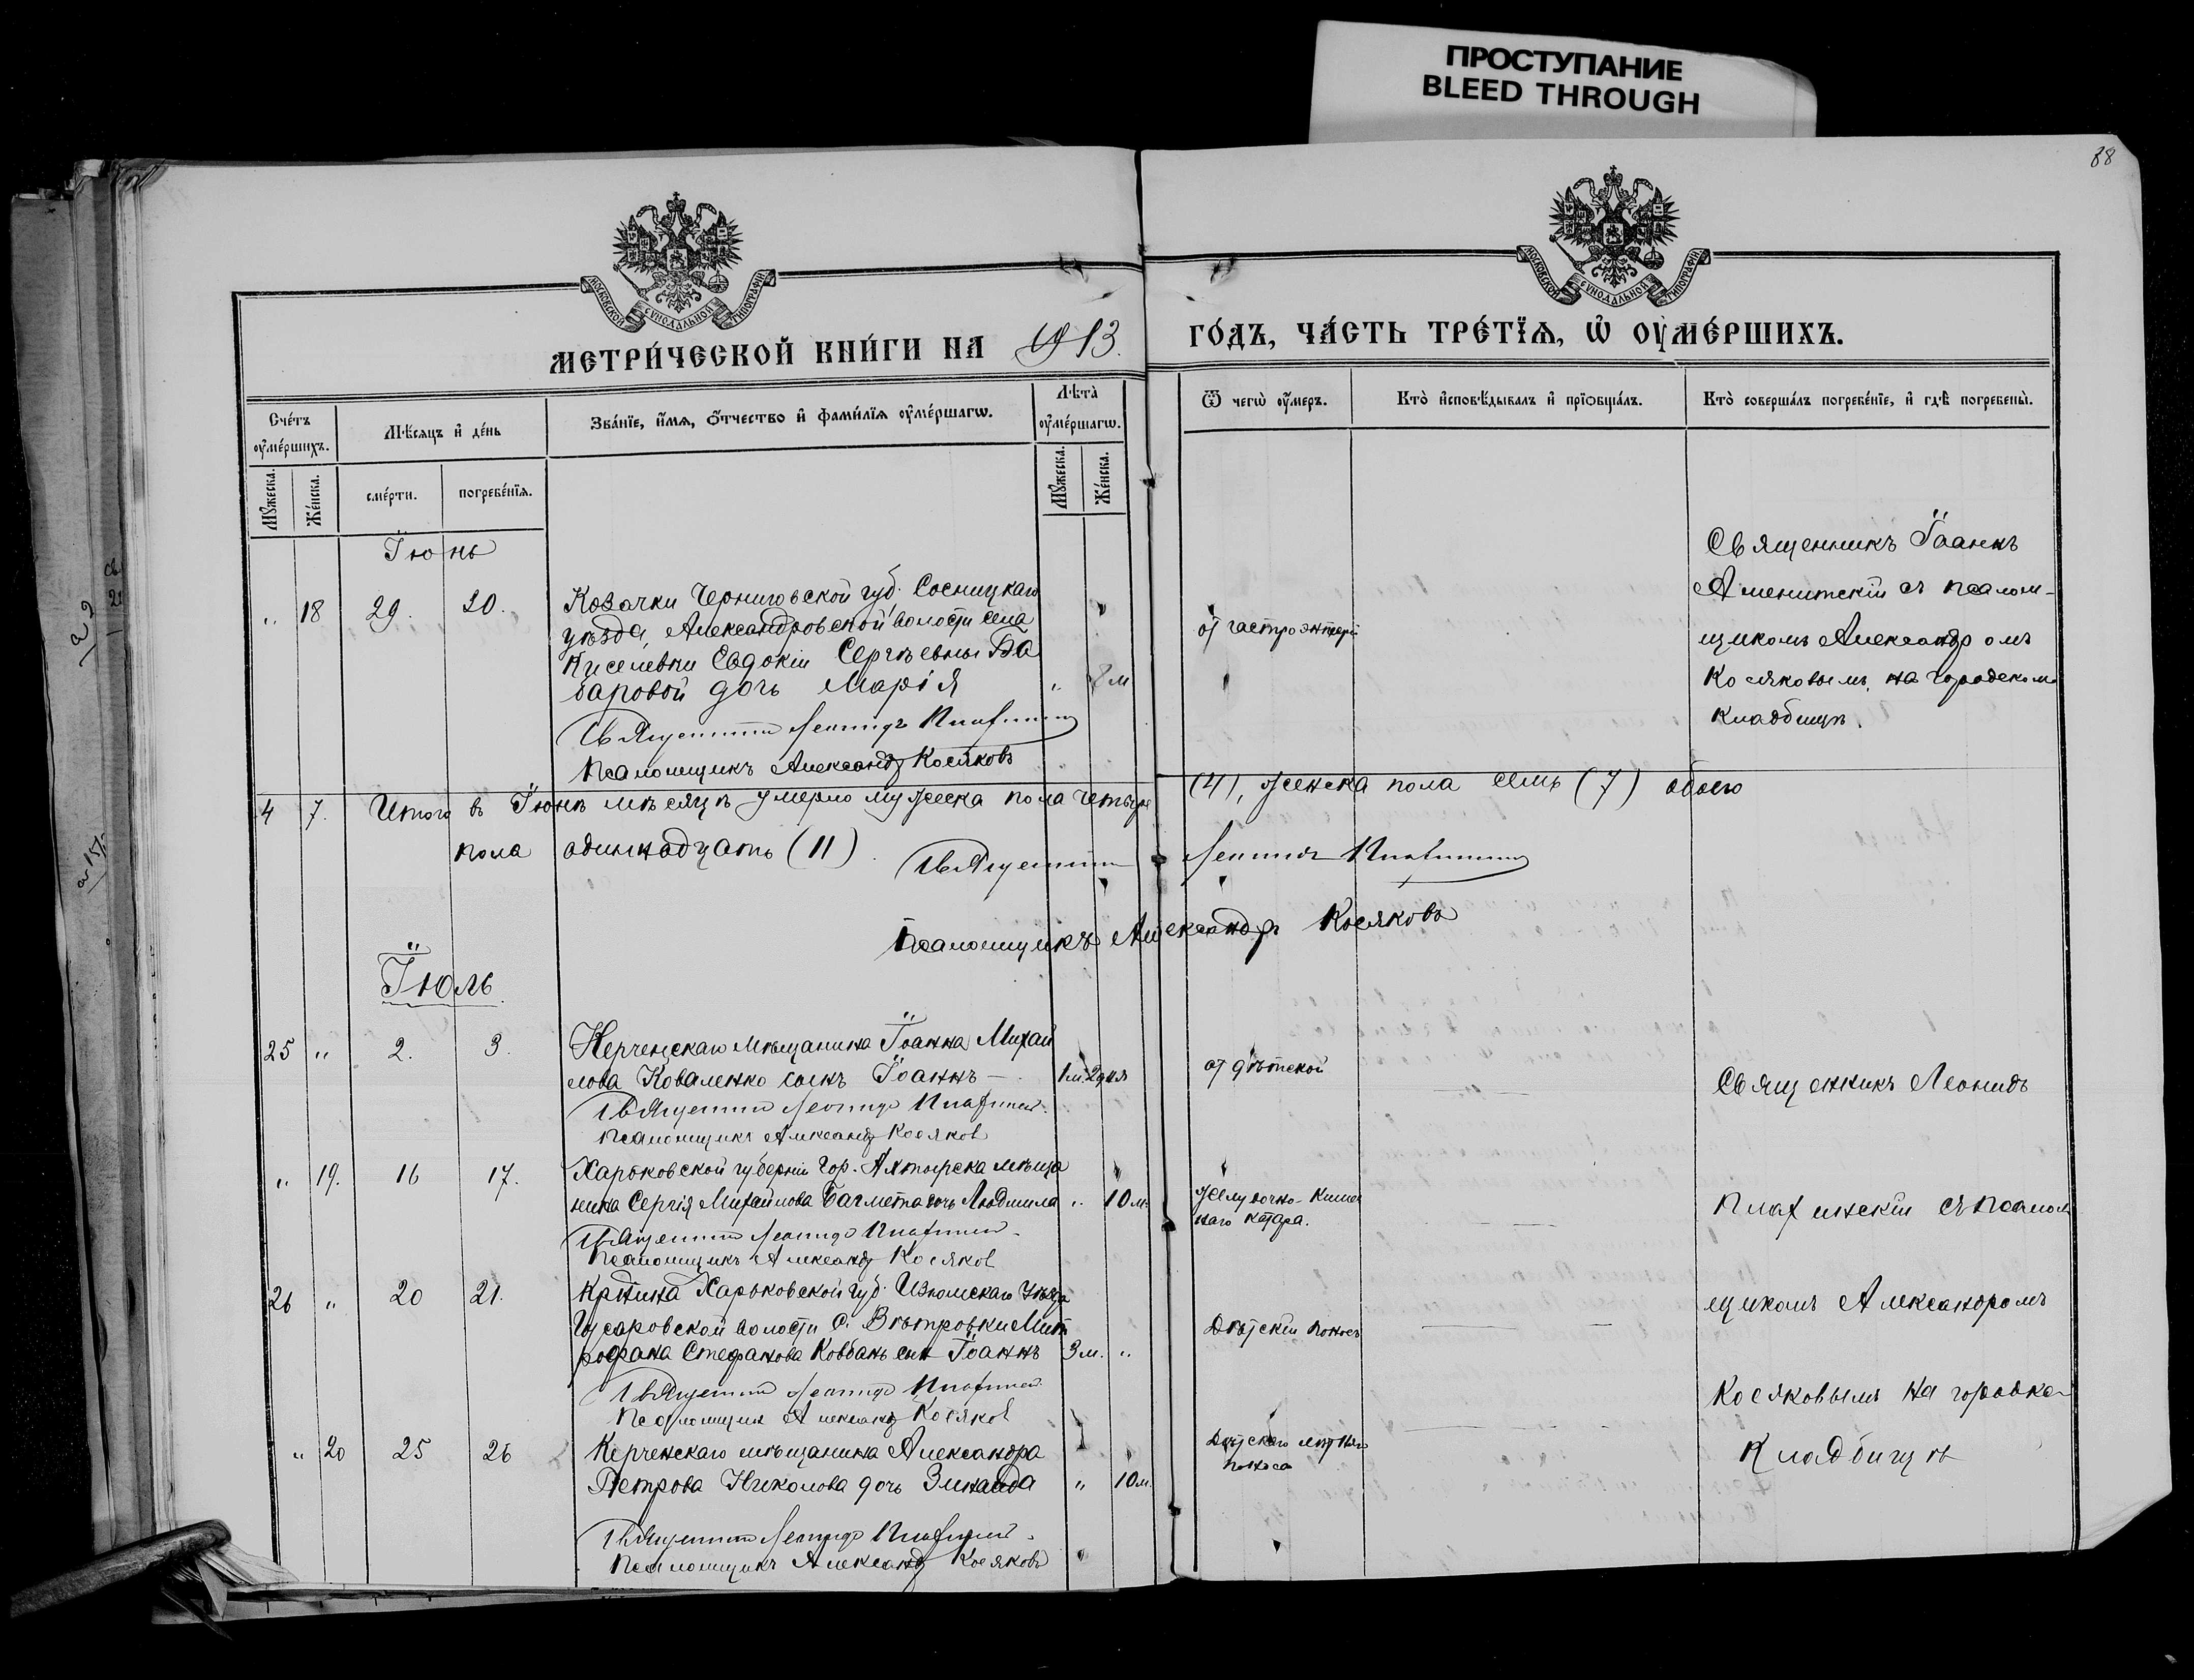 ПРОСТУПАНИЕ
BLEED THROUGH
88
МОСКОВСКОЙ СѴНОДАЛЬНОЙ ТИПОГРАФІИ
МОСКОВСКОЙ СѴНОДАЛЬНОЙ ТИПОГРАФІИ
МЕТРИ́ЧЕСКОЙ КНИ́ГИ НА 1913.
ГО́ДЪ, ЧА́СТЬ ТРЕ́ТЇѦ, Ѡ҆ ОУ҆МЕ́РШИХЪ.
Сче́тъ оу҆ме́ршихъ.
Мꙋжеска.
Же́нска.
Мѣ́сяцъ и҆ де́нь
сме́рти.
погребе́нїѧ.
Зва́нїе, и҆́мѧ, ѻ҆́тчество и҆ фами́лїѧ оу҆ме́ршагѡ.
Лѣта̀ оу҆ме́ршагѡ.
Мꙋжеска.
Же́нска.
Ѿ чегѡ̀ оу҆́мер.
Кто̀ и҆сповѣ́дывалъ и҆ прїѡбща́лъ.
Кто̀ соверша́лъ погребе́нїе, и҆ гдѣ̀ погребены̀.
Іюнь
„ 18 29. 20.
Козачки Черниговской губ. Сосницкаго
уѣзда, Александровской волости села
Киселевки Евдокіи Сергѣевны Ба
баровой дочь Марія „ 8 м
Священникъ Леонидъ
Псаломщикъ Александръ Косяковъ
от гастроэнтери
Священникъ Іоаннъ
Аменитскій съ псалом-
щикомъ Александромъ
Косяковымъ, на городском
кладбищѣ.
4 7. Итого въ Іюнѣ мѣсяцѣ умерло мужеска пола четыре (4), женска пола семь (7) обоего
пола одиннадцать (11). Священникъ Леонидъ
Псаломщикъ Александръ Косяковъ
Іюль
25 „ 2. 3.
Керченскаго мѣщанина Іоанна Михай
лова Коваленко сынъ Іоаннъ — 1 м. 2 дня
Священникъ Леонидъ
Псаломщикъ Александръ Косяков
от дѣтской
Священникъ Леонидъ
„ 19. 16 17.
Харьковской губерніи гор. Ахтырска мѣща
нина Сергія Михайлова Багмета дочь Людмила „ 10 м.
Священникъ Леонидъ
Псаломщикъ Александръ Косяков
Желудочно-кишеч
наго катара.
съ псалом
26 „ 20 21.
Кр‑нина Харьковской губ. Изюмскаго уѣзда
Гусаровской волости с. Вѣтровки Мит
рофана Стефанова Ковбань сын Іоаннъ 3 м. „
Священникъ Леонидъ
Псаломщикъ Александръ Косяков
Дѣтскій поносъ
щикомъ Александромъ
Косяковымъ на городско
„ 20 25 26
Керченскаго мѣщанина Александра
Петрова Николова дочь Зинаида „ 10 м.
Священникъ Леонидъ
Псаломщикъ Александръ Косяковъ
Дѣтскаго лѣтняго
поноса
кладбищѣ